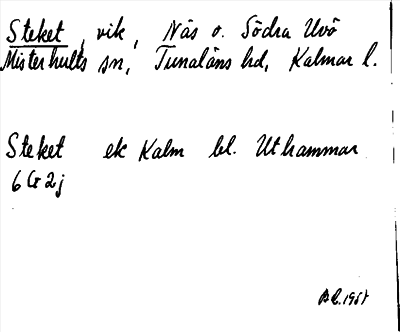 Steket, vik, Näs o. Södra Uvö
Misterhults sn, Tunaläns hd, Kalmar l.
Steket ek Kalm bl. Uthammar
6G2j